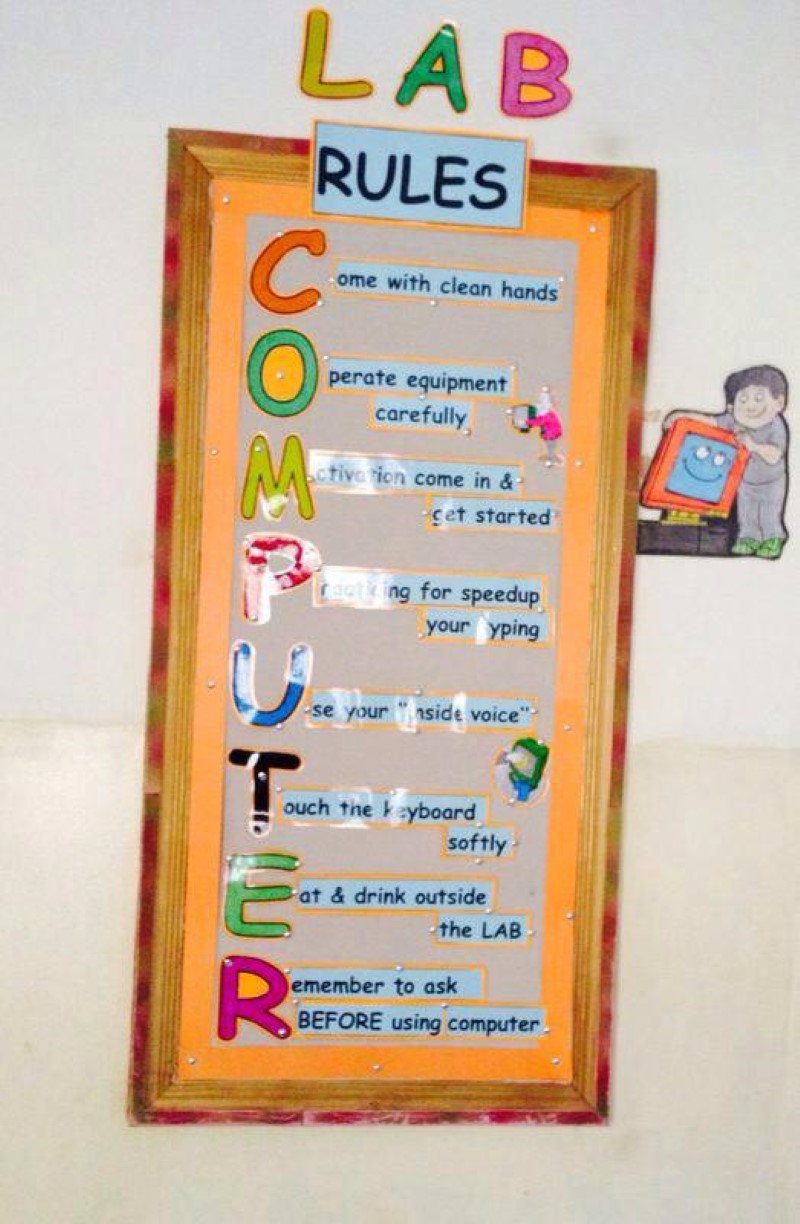 LAB
RULES
Come with clean hands
Operate equipment
carefully
Motivation come in &
get started
Practicing for speedup
your typing
Use your "inside voice"
Touch the keyboard
softly
Eat & drink outside
the LAB
Remember to ask
BEFORE using computer